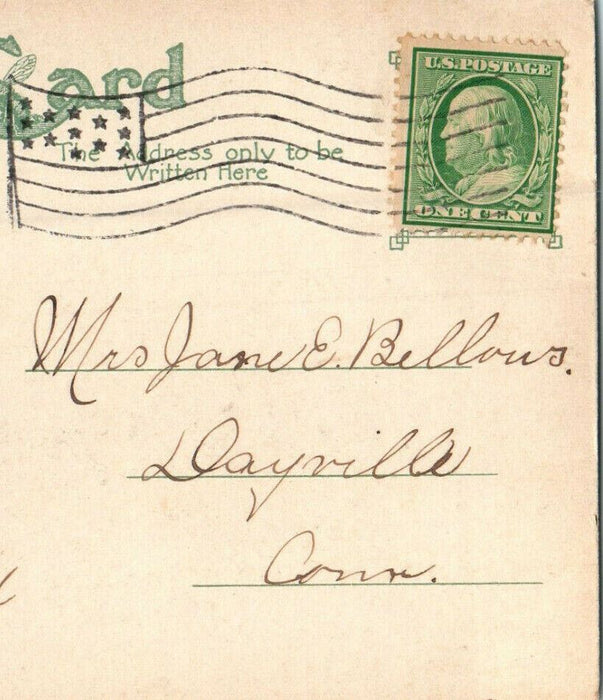 Card
U.S. POSTAGE
The Address only to be
Written Here
ONE CENT
Mrs Jane E. Bellows.
Dayville
Conn.